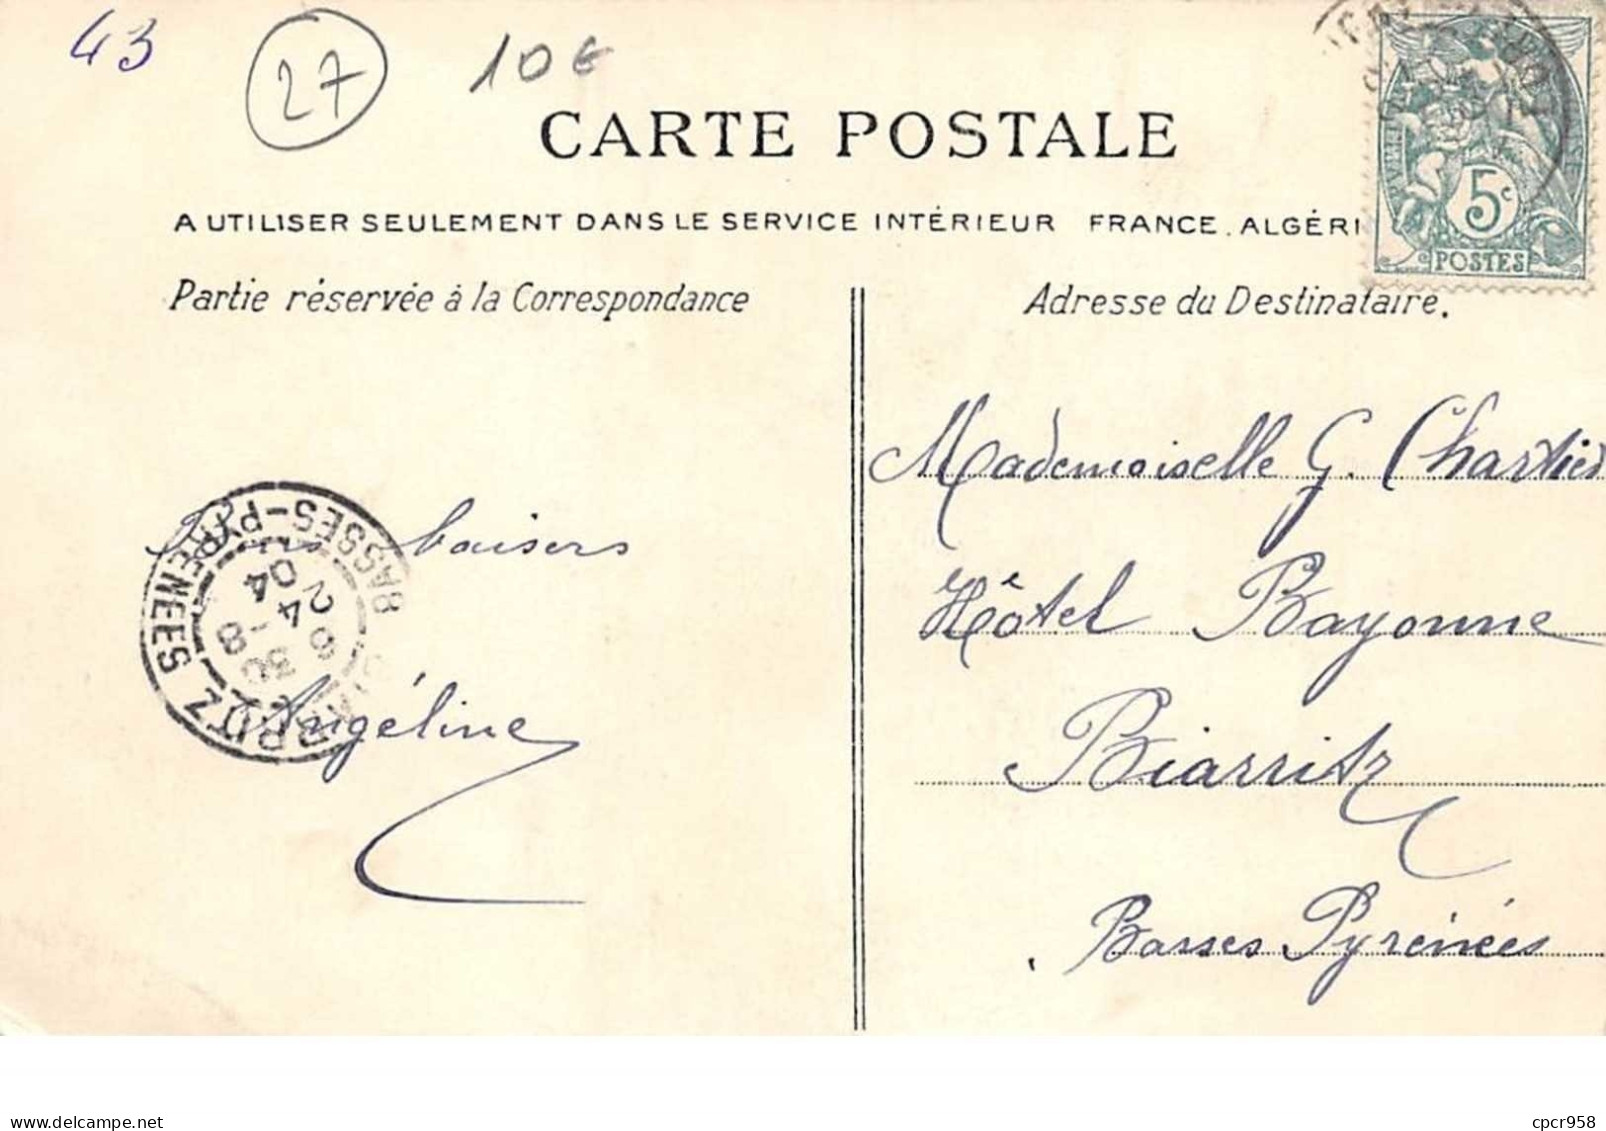 43
27
10€
CARTE POSTALE
A UTILISER SEULEMENT DANS LE SERVICE INTÉRIEUR FRANCE. ALGÉRI
5c
POSTES
Partie réservée à la Correspondance
Adresse du Destinataire.
Mademoiselle G. Chartier
baisers
Hôtel Bayonne
BASSES-PYRENEES
6 30
24 - 8
04
Angéline
Biarritz
Basses Pyrénées
cpcr958
www.delcampe.net